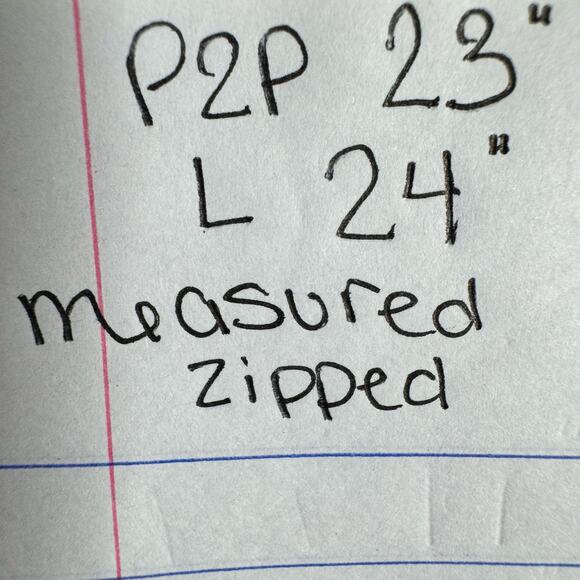 P2P 23"
L 24"
measured
zipped